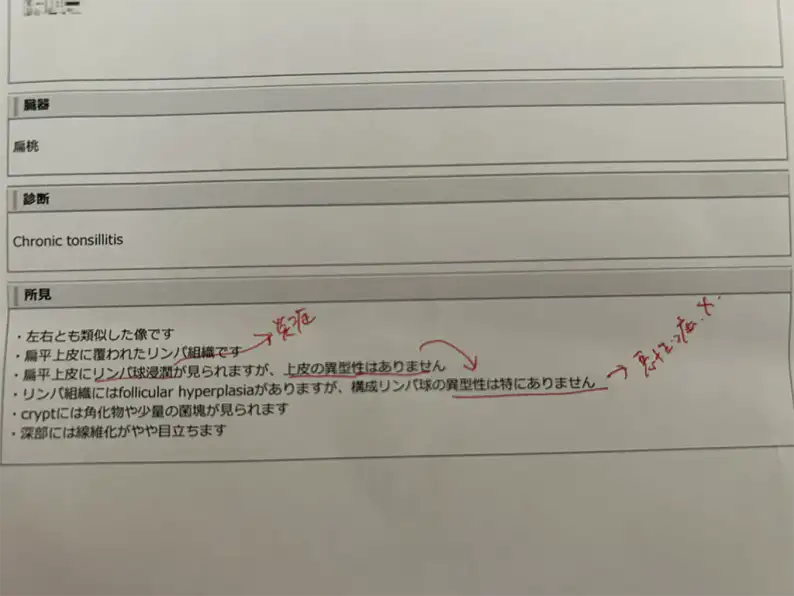 臓器
扁桃
診断
Chronic tonsillitis
所見
・左右とも類似した像です
・扁平上皮に覆われたリンパ組織です
炎症
・扁平上皮にリンパ球浸潤が見られますが、上皮の異型性はありません
・リンパ組織にはfollicular hyperplasiaがありますが、構成リンパ球の異型性は特にありません
・cryptには角化物や少量の菌塊が見られます
・深部には線維化がやや目立ちます